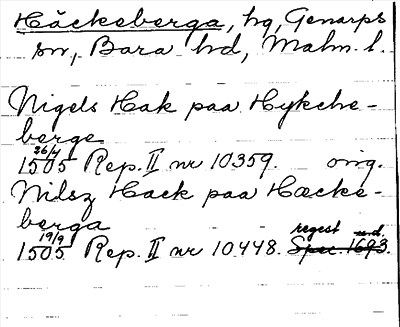 Häckeberga, hg, Genarps
sn, Bara hd, Malm. l.
Nigels Hak paa Hykche-
berge
26/4 1505 Rep. II nr 10359. orig.
Nilsz Hack paa Hæcke-
berga
19/9 1505 Rep. II nr 10448. regest u.d. Spec. 1693.